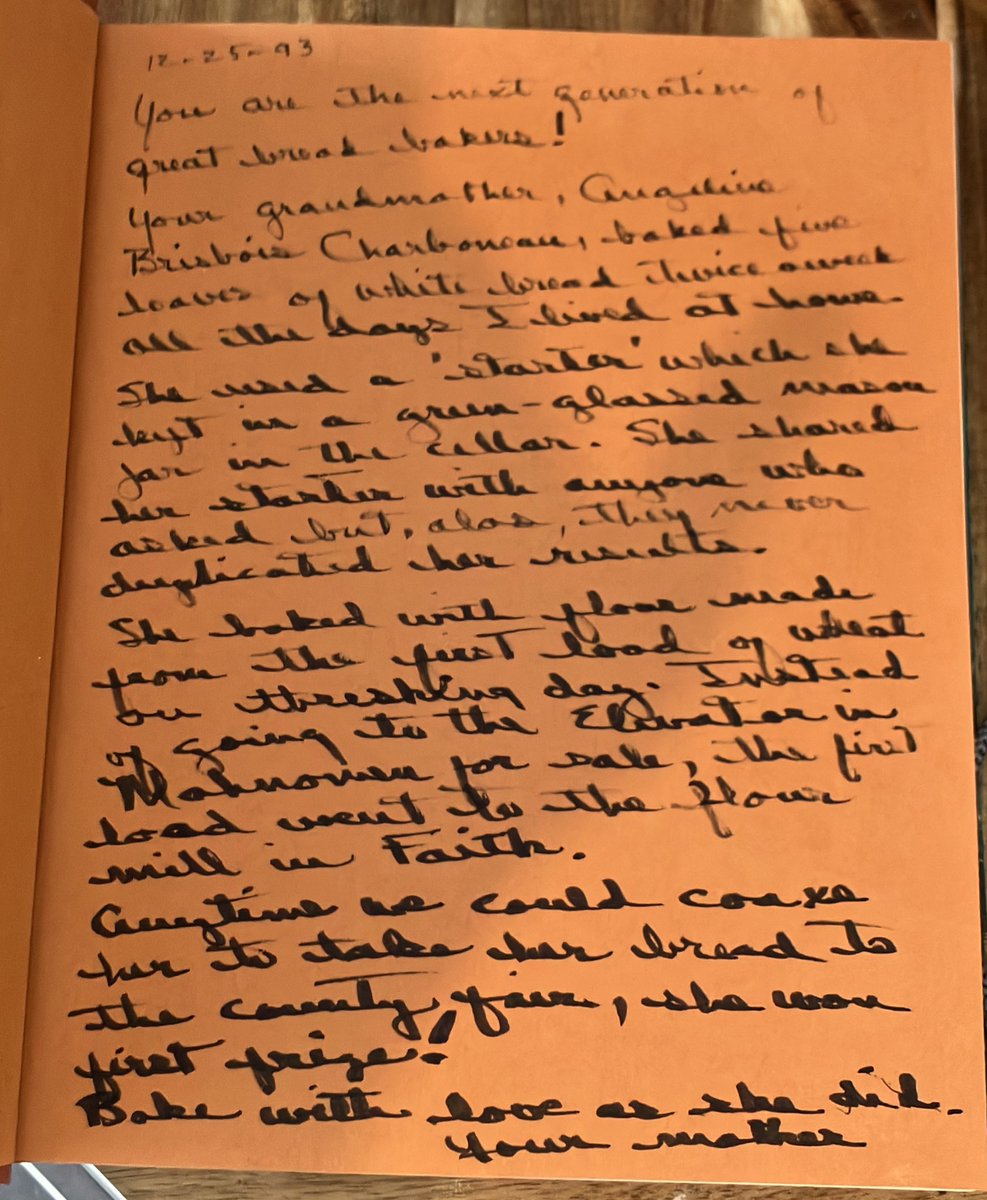 12-25-93
You are the next generation of
great bread bakers!
Your grandmother, Angeline
Brisbois Charboneau, baked five
loaves of white bread twice a week
all the days I lived at home.
She used a "starter" which she
kept in a green-glassed mason
jar in the cellar. She shared
her starter with anyone who
asked but, alas, they never
duplicated her results.
She baked with flour made
from the first load of wheat
on threshing day. Instead
of going to the Elevator in
Mahnomen for sale, the first
load went to the flour
mill in Faith.
Anytime we could coaxe
her to take her bread to
the county fair, she won
first prize!
Bake with love as she did.
Your mother